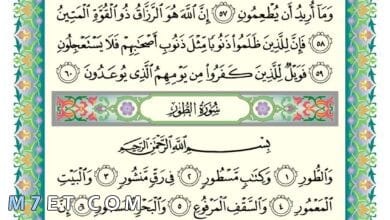 وَمَآ أُرِيدُ أَن يُطْعِمُونِ ٥٧ إِنَّ ٱللَّهَ هُوَ ٱلرَّزَّاقُ ذُو ٱلْقُوَّةِ ٱلْمَتِينُ
٥٨ فَإِنَّ لِلَّذِينَ ظَلَمُوا۟ ذَنُوبًا مِّثْلَ ذَنُوبِ أَصْحَٰبِهِمْ فَلَا يَسْتَعْجِلُونِ
٥٩ فَوَيْلٌ لِّلَّذِينَ كَفَرُوا۟ مِن يَوْمِهِمُ ٱلَّذِى يُوعَدُونَ ٦٠
سُورَةُ الطُّورِ
بِسْمِ ٱللَّهِ ٱلرَّحْمَٰنِ ٱلرَّحِيمِ
وَٱلطُّورِ ١ وَكِتَٰبٍ مَّسْطُورٍ ٢ فِى رَقٍّ مَّنشُورٍ ٣ وَٱلْبَيْتِ
ٱلْمَعْمُورِ ٤ وَٱلسَّقْفِ ٱلْمَرْفُوعِ ٥ وَٱلْبَحْرِ ٱلْمَسْجُورِ ٦ إِنَّ
M7ET.COM